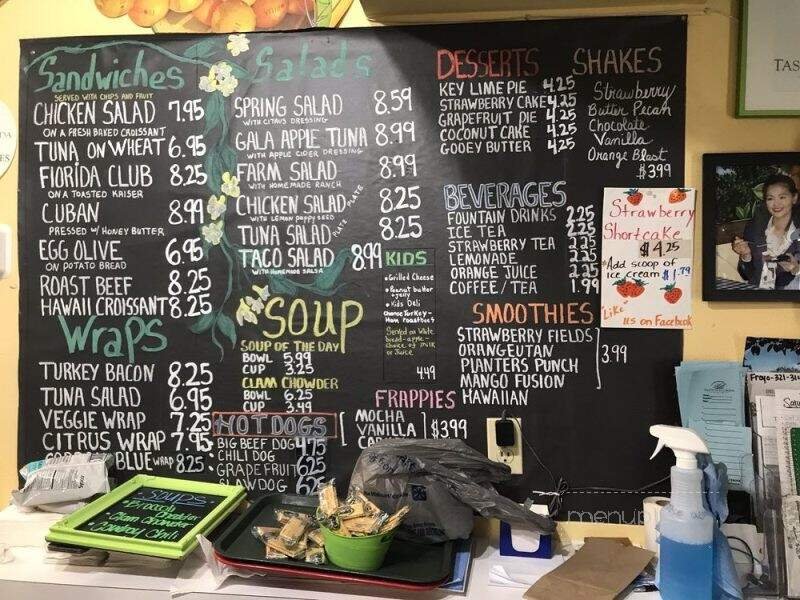 Sandwiches
SERVED WITH CHIPS AND FRUIT
CHICKEN SALAD 7.95
ON A FRESH BAKED CROISSANT
TUNA ON WHEAT 6.95
FLORIDA CLUB 8.25
ON A TOASTED KAISER
CUBAN 8.99
PRESSED W/ HONEY BUTTER
EGG OLIVE 6.95
ON POTATO BREAD
ROAST BEEF 8.25
HAWAII CROISSANT 8.25
Wraps
TURKEY BACON 8.25
TUNA SALAD 6.95
VEGGIE WRAP 7.25
CITRUS WRAP 7.95
BLUE WRAP 8.25
Salads
SPRING SALAD 8.59
WITH CITRUS DRESSING
GALA APPLE TUNA 8.99
WITH APPLE CIDER DRESSING
FARM SALAD 8.99
WITH HOMEMADE RANCH
CHICKEN SALAD PLATE 8.25
WITH LEMON POPPY SEED
TUNA SALAD PLATE 8.25
TACO SALAD 8.99
WITH HOMEMADE SALSA
SOUP
SOUP OF THE DAY
BOWL 5.99
CUP 3.25
CLAM CHOWDER
BOWL 6.25
CUP 3.49
HOT DOGS
BIG BEEF DOG 4.75
CHILI DOG
GRAPEFRUIT 6.25
SLAW DOG 6.25
KIDS
Grilled Cheese
Peanut butter + jelly
Kids Deli
Choose Turkey-
Ham roast beef
Served on white
bread-apple-
choice of milk
or Juice
4.49
FRAPPIES
MOCHA
VANILLA $3.99
DESSERTS
KEY LIME PIE 4.25
STRAWBERRY CAKE 4.25
GRAPEFRUIT PIE 4.25
COCONUT CAKE 4.25
GOOEY BUTTER 4.25
BEVERAGES
FOUNTAIN DRINKS 2.25
ICE TEA 2.25
STRAWBERRY TEA 2.25
LEMONADE 2.25
ORANGE JUICE 2.25
COFFEE / TEA 1.99
SMOOTHIES
STRAWBERRY FIELDS
ORANGEUTAN
PLANTERS PUNCH 3.99
MANGO FUSION
HAWAIIAN
SHAKES
Strawberry
Butter Pecan
Chocolate
Vanilla
Orange Blast
$3.99
Strawberry
Shortcake
$4.25
*Add scoop of
ice cream $1.79
"Like"
us on Facebook
TAS
SOUPS
Broccoli Cheddar
Clam Chowder
Cowboy Chili
menup